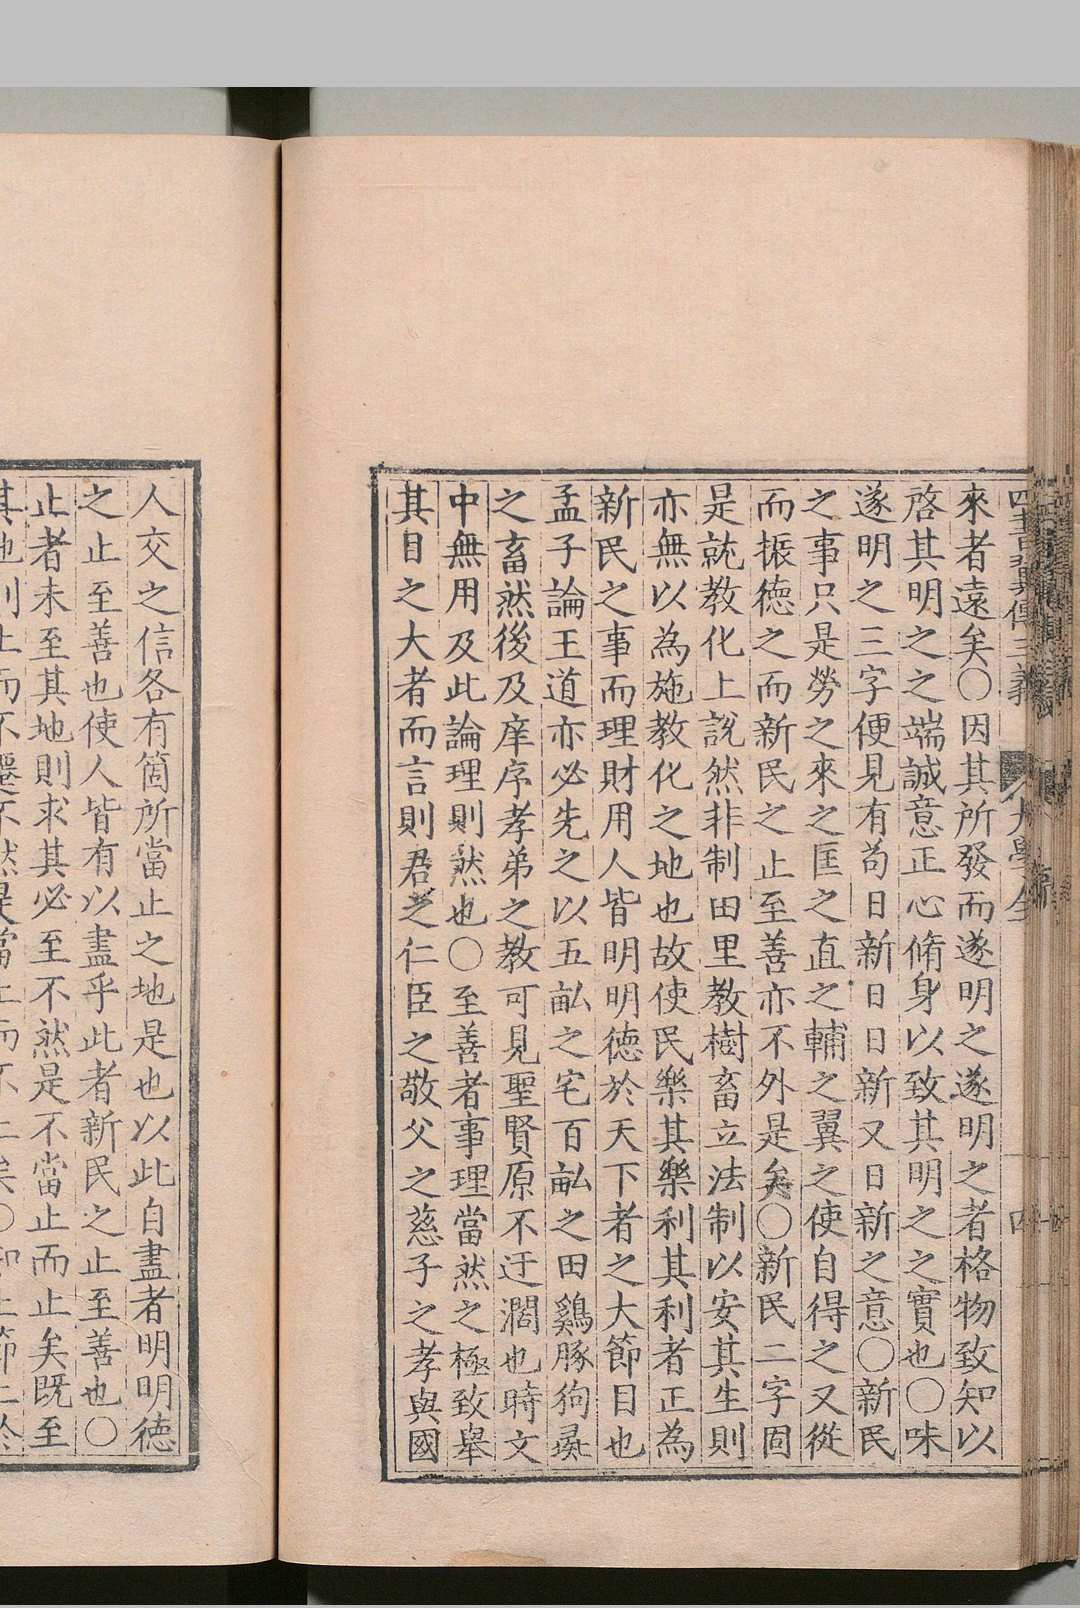 來者遠矣〇因其所發而遂明之遂明之者格物致知以
啓其明之之端誠意正心脩身以致其明之之實也〇味
遂明之三字便見有苟日新日日新又日新之意〇新民
之事只是勞之來之匡之直之輔之翼之使自得之又從
而振德之而新民之止至善亦不外是矣〇新民二字固
是就教化上說然非制田里教樹畜立法制以安其生則
亦無以為施教化之地也故使民樂其樂利其利者正為
新民之事而理財用人皆明明德於天下者之大節目也
孟子論王道亦必先之以五畝之宅百畝之田鷄豚狗彘
之畜然後及庠序孝弟之教可見聖賢原不迂濶也時文
中無用及此論理則然也〇至善者事理當然之極致舉
其目之大者而言則君之仁臣之敬父之慈子之孝與國
人交之信各有箇所當止之地是也以此自盡者明明德
之止至善也使人皆有以盡乎此者新民之止至善也〇
止者未至其地則求其必至不然是不當止而止矣既至
其地則止而不遷不然是當止而不止矣〇知止節止於